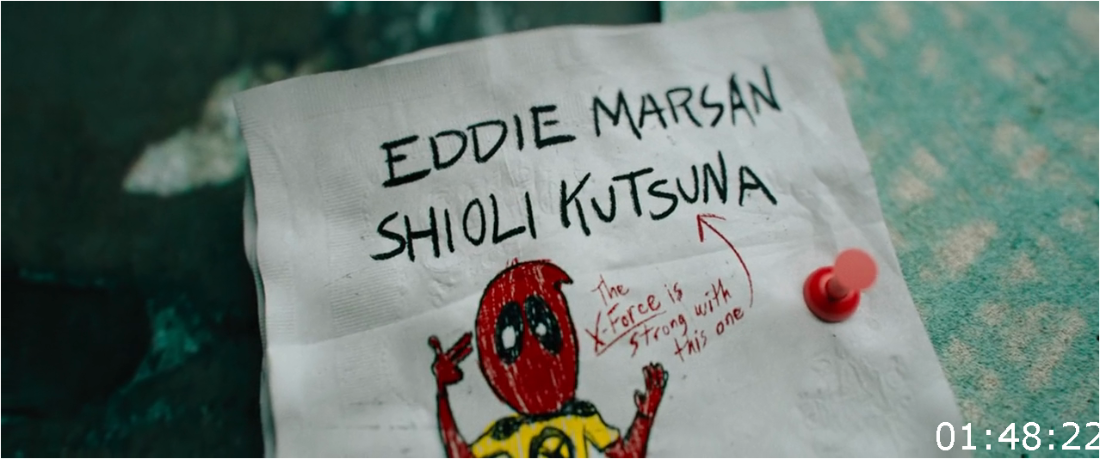 EDDIE MARSAN
SHIOLI KUTSUNA
The
X-Force is
strong with
this one
01:48:22